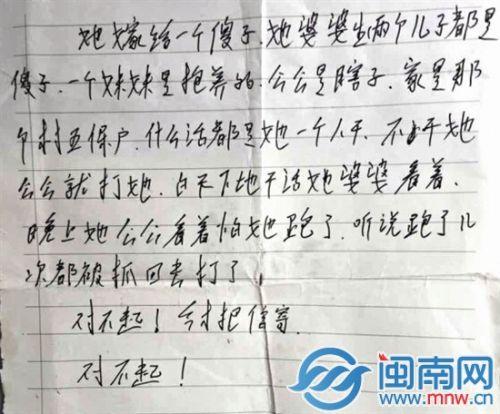 她嫁给一个傻子.她婆婆生两个儿子都是
傻子.一个妹妹是抱养的.公公是瞎子.家是那
个村五保户.什么活都是她一个人干.不干她
公公就打她.白天下地干活她婆婆看着.
晚上她公公看着怕她跑了.听说跑了几
次都被抓回去打了
对不起！今才把信寄.
对不起！
闽南网
www.mnw.cn